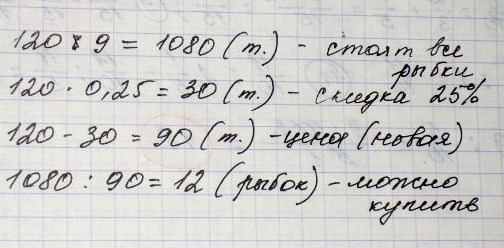 120 × 9 = 1080 (т.) - стоят все
рыбки
120 · 0,25 = 30 (т.) - скидка 25%
120 - 30 = 90 (т.) - цена (новая)
1080 : 90 = 12 (рыбок) - можно
купить